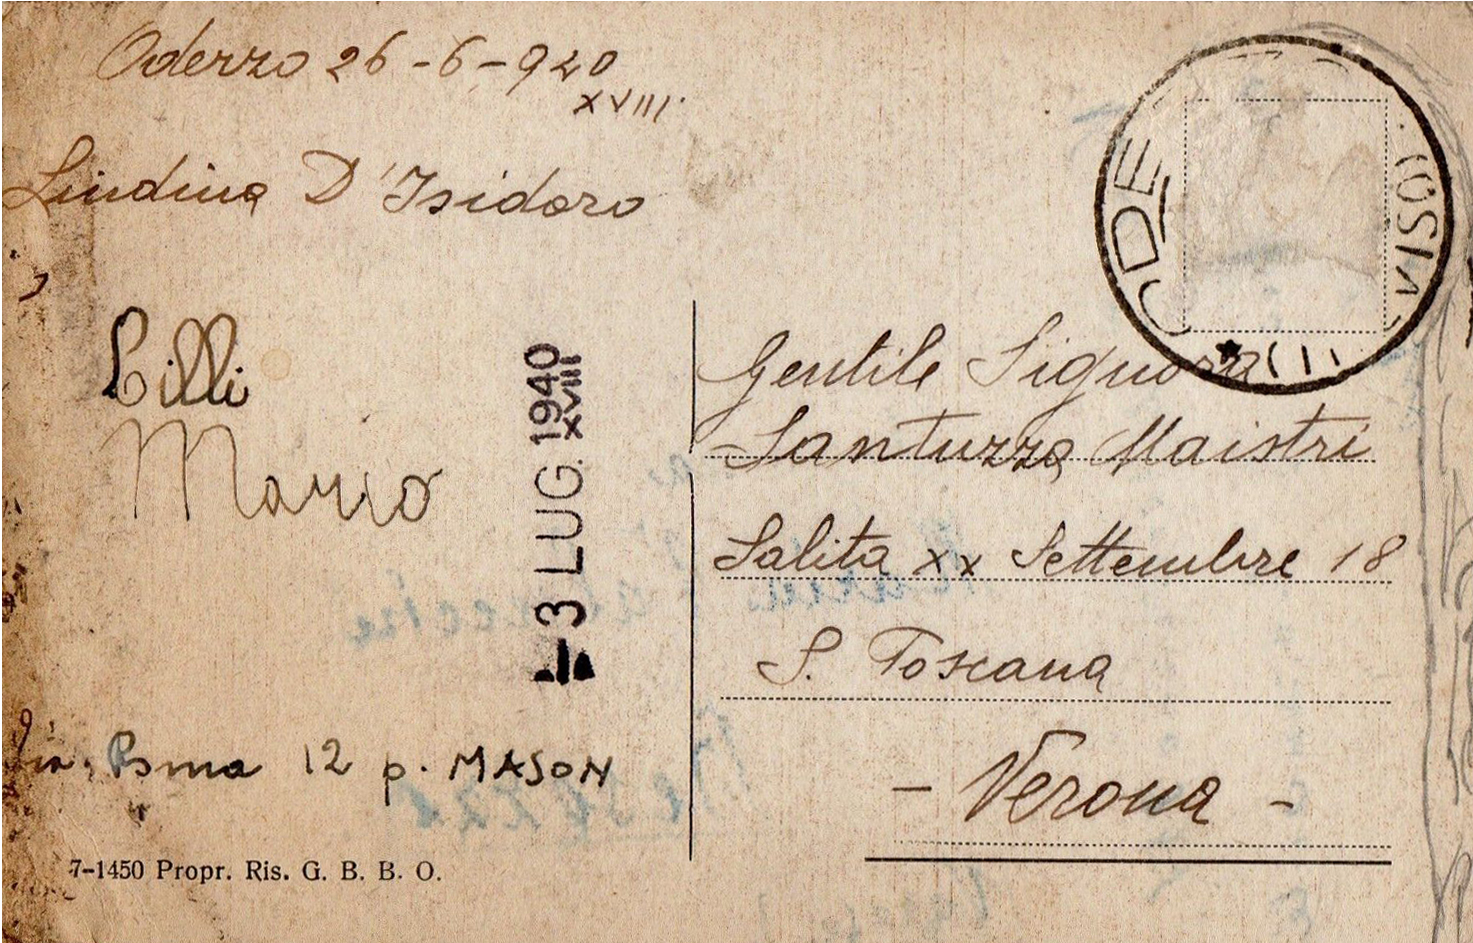 Oderzo 26-6-940
XVIII.
Lindina D'Isidoro
Lilli
Mario
-3 LUG. 1940
XVIII
Via Roma 12 p. MASON
7-1450 Propr. Ris. G. B. B. O.
Gentile Signora
Santuzza Maistri
Salita XX Settembre 18
S. Toscana
- Verona -